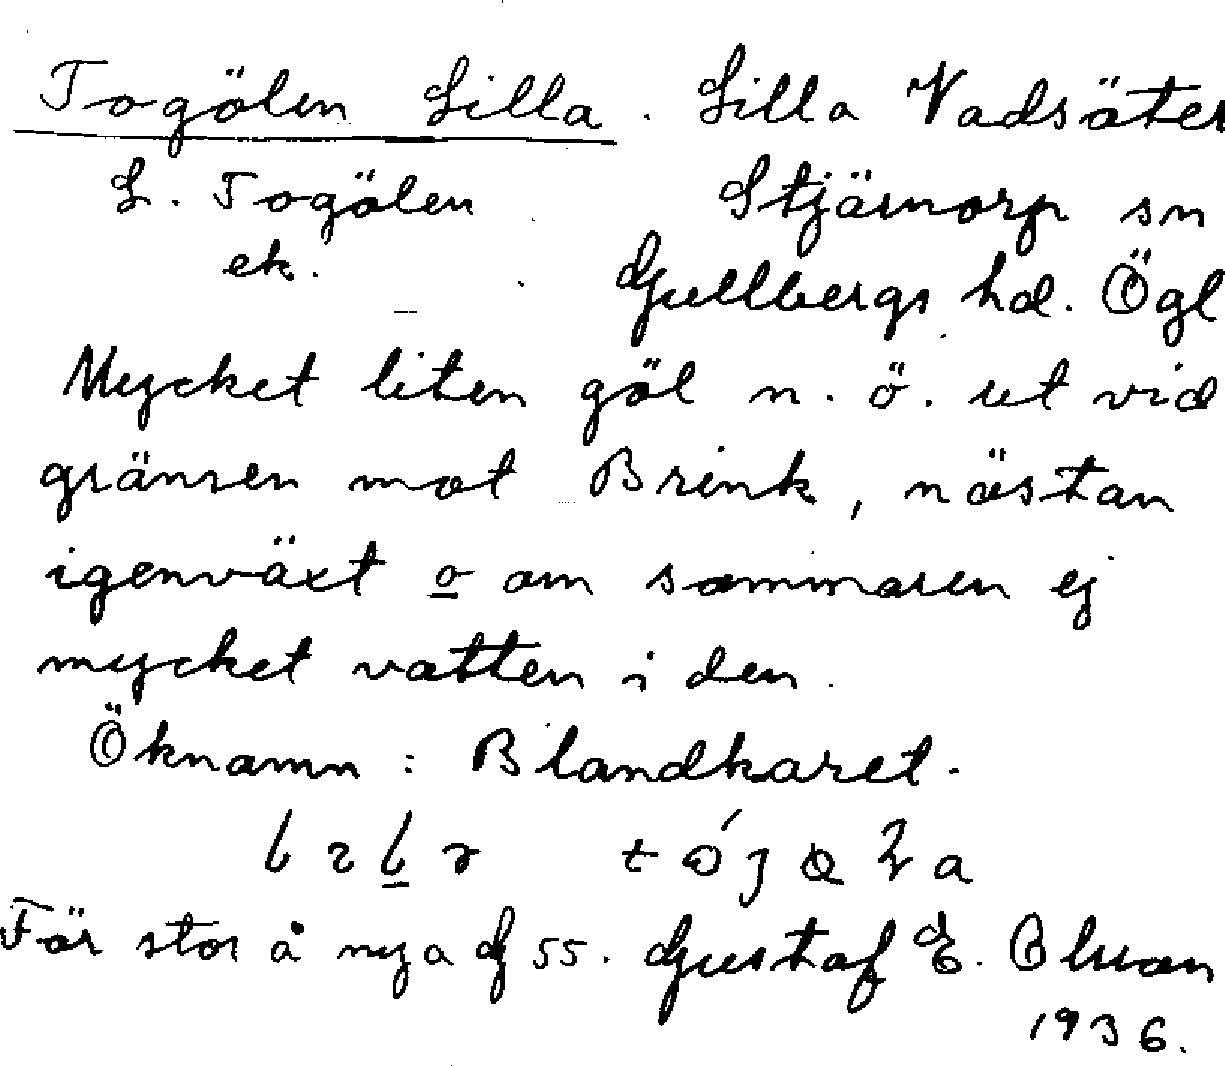 Togölen Lilla. Lilla Vadsäter
L. Togölen Stjärnorp sn
ek. Gullbergs hd. Ögl
Mycket liten göl n. ö. ut vid
gränsen mot Brink, nästan
igenväxt o om sommaren ej
mycket vatten i den.
Öknamn: Blandkaret.
För stor å nya G 55. Gustaf E. Olsson
1936.